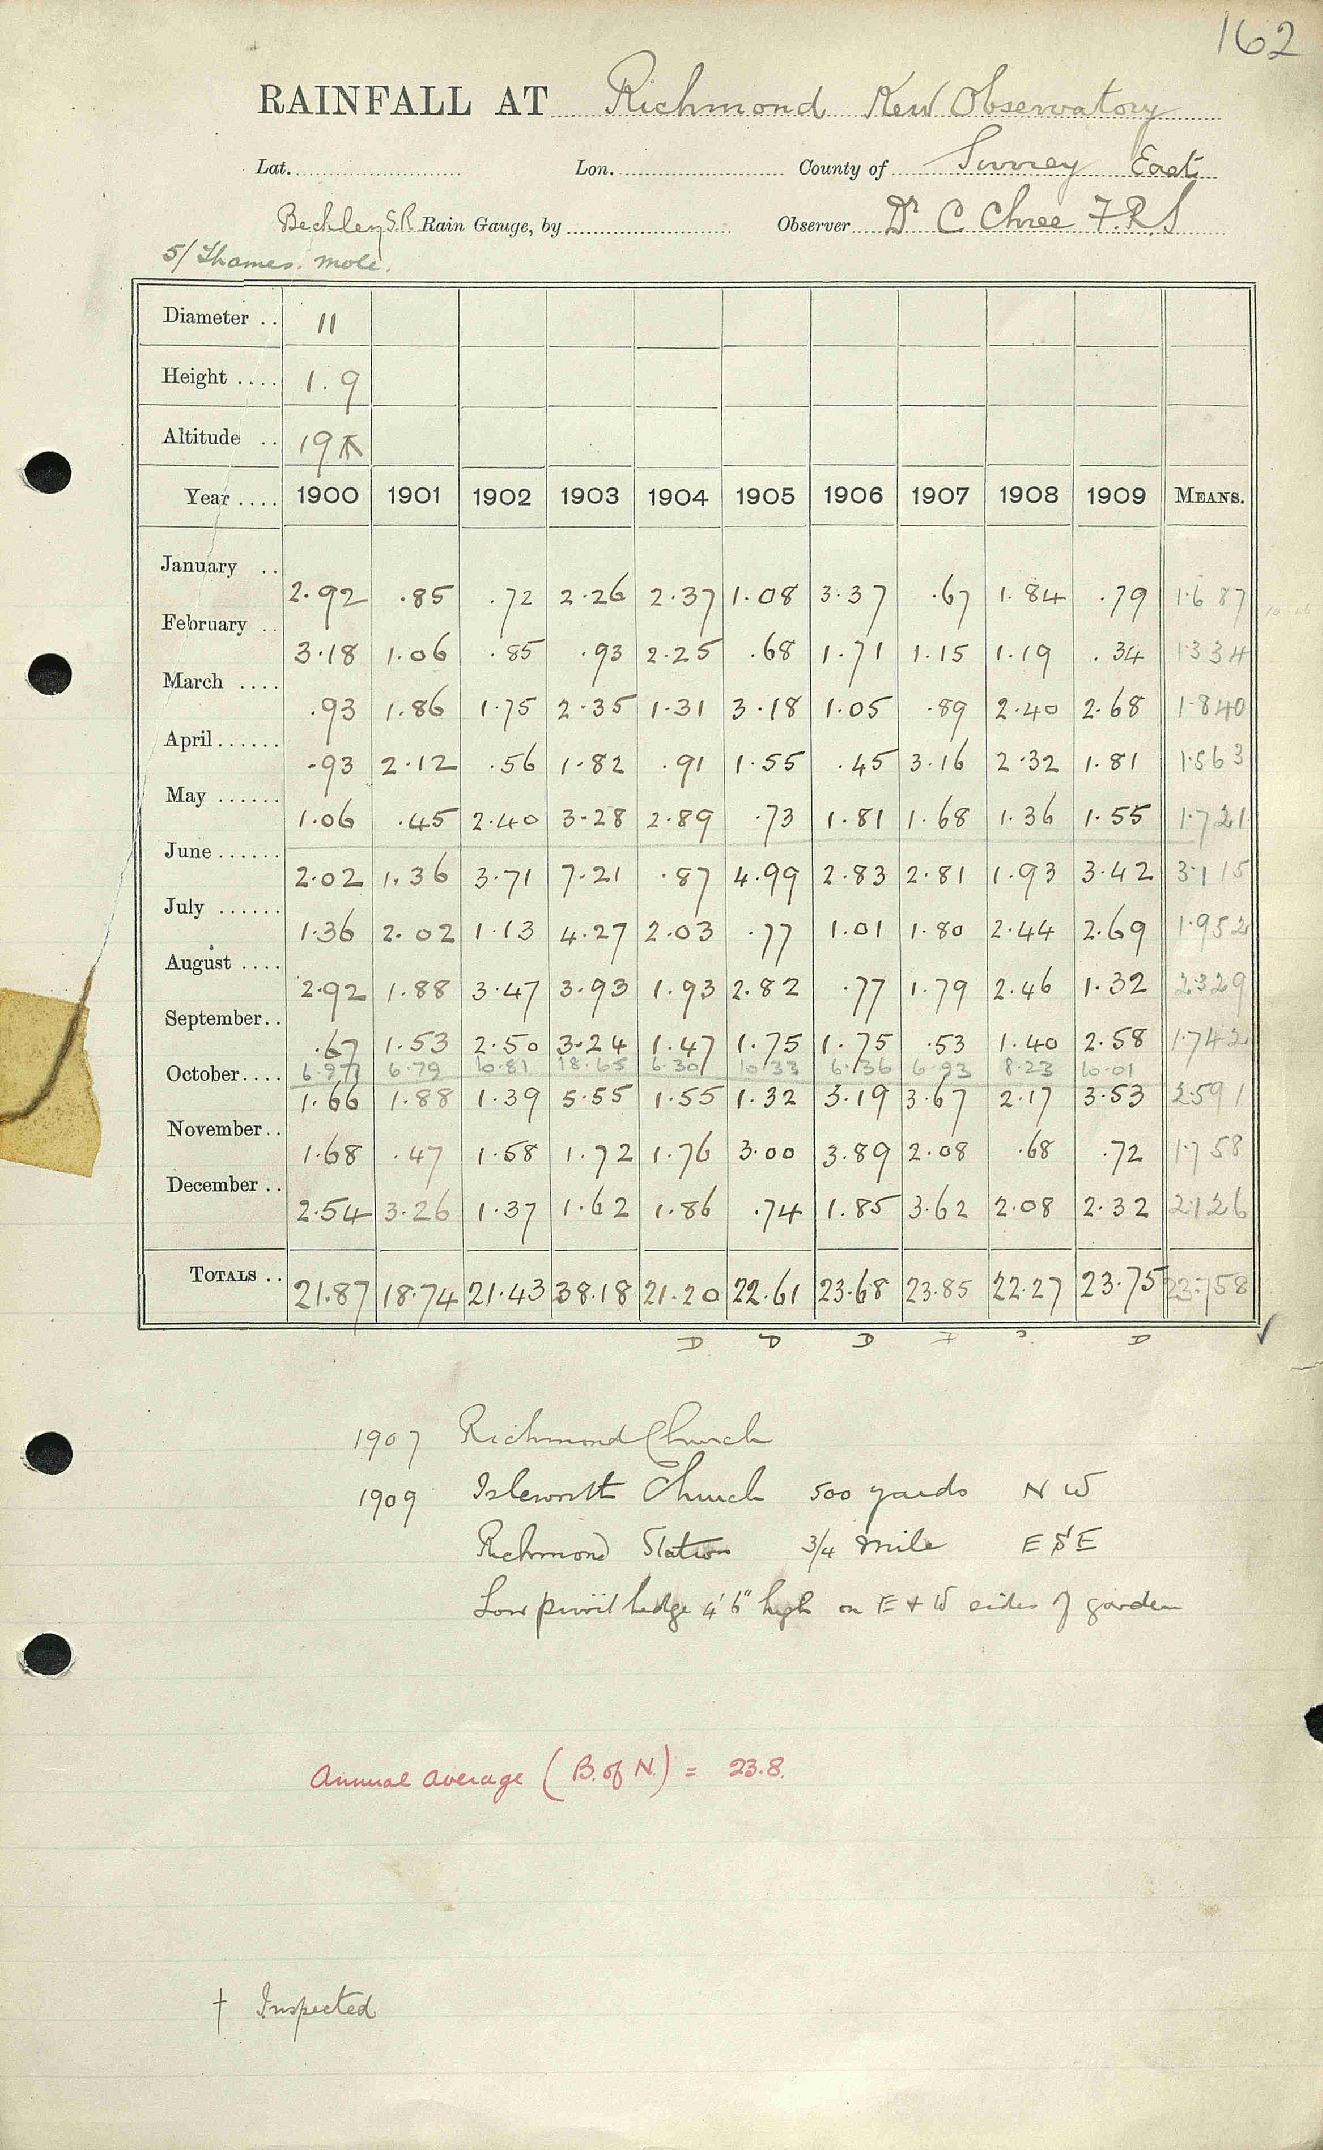 162
RAINFALL AT Richmond Kew Observatory
Lat. Lon. County of Surrey East
Beckley S.R Rain Gauge, by Observer Dr C Chree F.R.S
5/ Thames. Mole.
Diameter .. 11
Height .... 1.9
Altitude .. 19
Year .... 1900 1901 1902 1903 1904 1905 1906 1907 1908 1909 MEANS.
January .. 2.92 .85 .72 2.26 2.37 1.08 3.37 .67 1.84 .79 1.687
February .. 3.18 1.06 .85 .93 2.25 .68 1.71 1.15 1.19 .34 1.334
March .... .93 1.86 1.75 2.35 1.31 3.18 1.05 .89 2.40 2.68 1.840
April ...... .93 2.12 .56 1.82 .91 1.55 .45 3.16 2.32 1.81 1.563
May ...... 1.06 .45 2.40 3.28 2.89 .73 1.81 1.68 1.36 1.55 1.721
June ...... 2.02 1.36 3.71 7.21 .87 4.99 2.83 2.81 1.93 3.42 3.115
July ...... 1.36 2.02 1.13 4.27 2.03 .77 1.01 1.80 2.44 2.69 1.952
August .... 2.92 1.88 3.47 3.93 1.93 2.82 .77 1.79 2.46 1.32 2.329
September.. .67 1.53 2.50 3.24 1.47 1.75 1.75 .53 1.40 2.58 1.742
6.97 6.79 10.81 18.65 6.30 10.33 6.36 6.93 8.23 10.01
October.... 1.66 1.88 1.39 5.55 1.55 1.32 3.19 3.67 2.17 3.53 2.591
November.. 1.68 .47 1.58 1.72 1.76 3.00 3.89 2.08 .68 .72 1.758
December .. 2.54 3.26 1.37 1.62 1.86 .74 1.85 3.62 2.08 2.32 2.126
TOTALS .. 21.87 18.74 21.43 38.18 21.20 22.61 23.68 23.85 22.27 23.75 23.758
D D D D
1907 Richmond Church
1909 Isleworth Church 500 yards NW
Richmond Station 3/4 mile ESE
Low privit hedge 4'6" high on E + W sides of garden
Annual average (B. of N.) = 23.8.
† Inspected